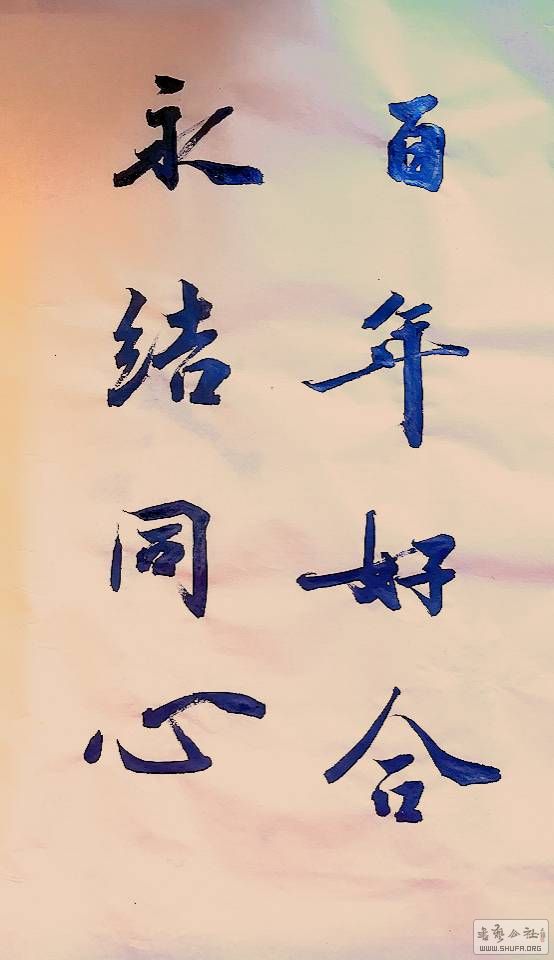 百年好合
永结同心
书艺公社
WWW.SHUFA.ORG